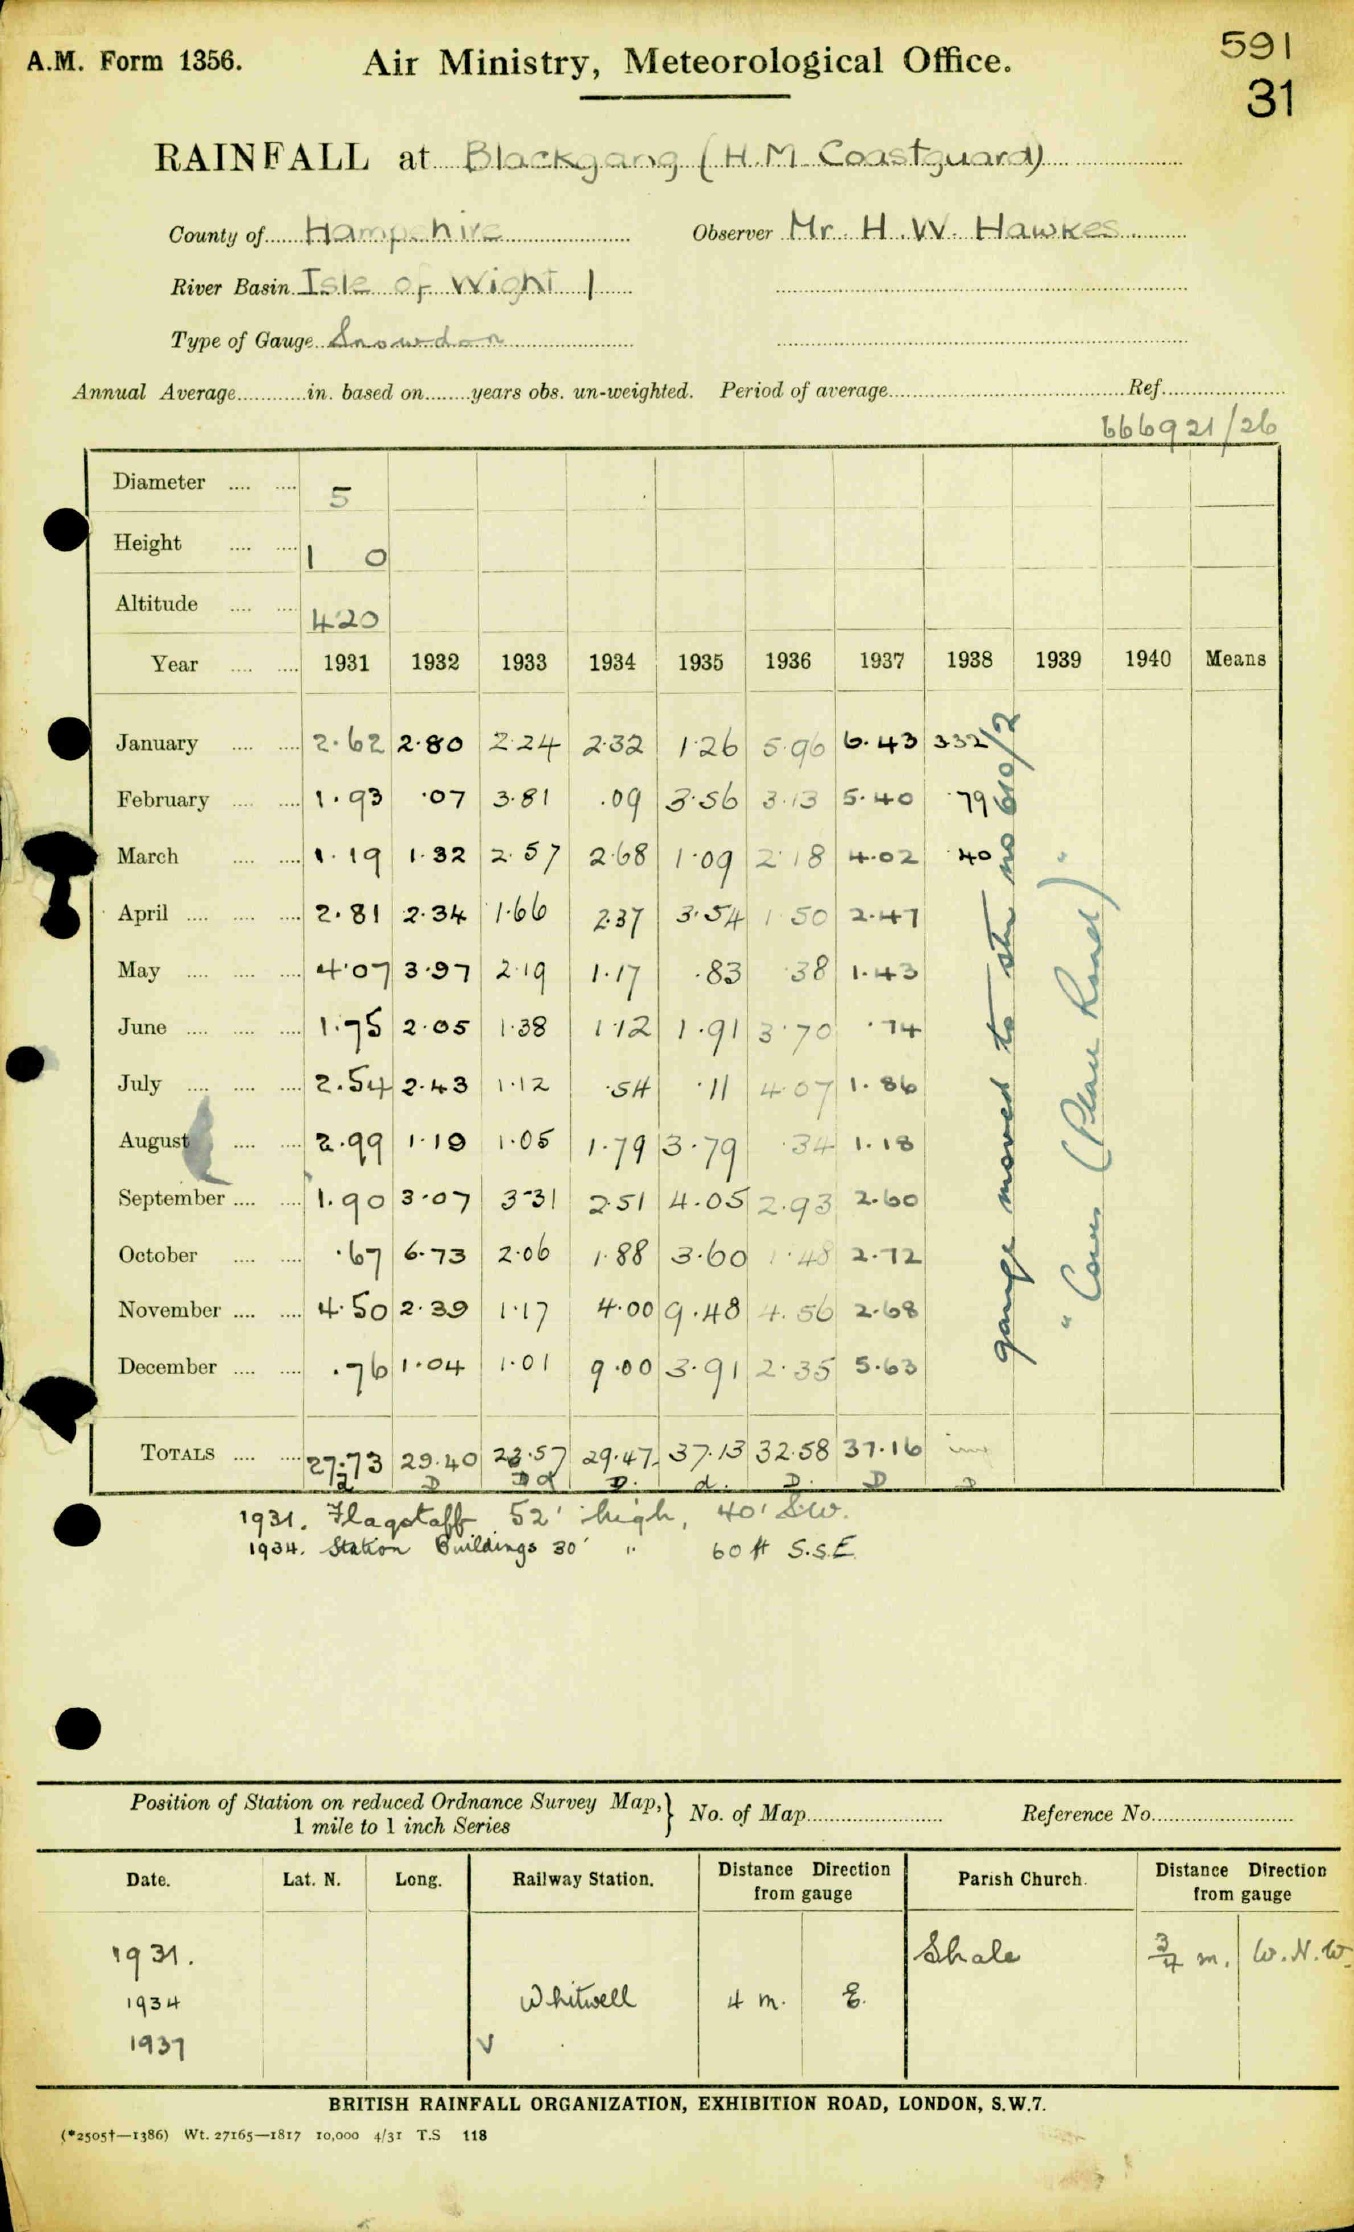 A.M. Form 1356.
Air Ministry, Meteorological Office.
591
31
RAINFALL at Blackgang (H.M. Coastguard)
County of Hampshire Observer Mr. H. W. Hawkes
River Basin Isle of Wight 1
Type of Gauge Snowdon
Annual Average in. based on years obs. un-weighted. Period of average Ref.
666921/26
Diameter 5
Height 1 0
Altitude 420
Year 1931 1932 1933 1934 1935 1936 1937 1938 1939 1940 Means
January 2.62 2.80 2.24 2.32 1.26 5.96 6.43 3.32
February 1.93 .07 3.81 .09 3.56 3.13 5.40 .79
March 1.19 1.32 2.57 2.68 1.09 2.18 4.02 .40
April 2.81 2.34 1.66 2.37 3.54 1.50 2.47
May 4.07 3.97 2.19 1.17 .83 .38 1.43
June 1.75 2.05 1.38 1.12 1.91 3.70 .74
July 2.54 2.43 1.12 .54 .11 4.07 1.86
August 2.99 1.19 1.05 1.79 3.79 .34 1.18
September 1.90 3.07 3.31 2.51 4.05 2.93 2.60
October .67 6.73 2.06 1.88 3.60 1.48 2.72
November 4.50 2.39 1.17 4.00 9.48 4.56 2.68
December .76 1.04 1.01 9.00 3.91 2.35 5.63
TOTALS 27.73 29.40 23.57 29.47 37.13 32.58 37.16
d D D d D. d. D. D D
gauge moved to stn no 610/2
" Cowes (Place Road) "
1931. Flagstaff 52' high, 40' S.W.
1934. Station Buildings 30' " 60 ft S.S.E.
Position of Station on reduced Ordnance Survey Map, } No. of Map Reference No.
1 mile to 1 inch Series
Date. Lat. N. Long. Railway Station. Distance Direction from gauge Parish Church. Distance Direction from gauge
1931. Shale 3/4 m. W.N.W.
1934 Whitwell 4 m. E.
1937 v
BRITISH RAINFALL ORGANIZATION, EXHIBITION ROAD, LONDON, S.W.7.
(*2505†—1386) Wt. 27165—1817 10,000 4/31 T.S 118